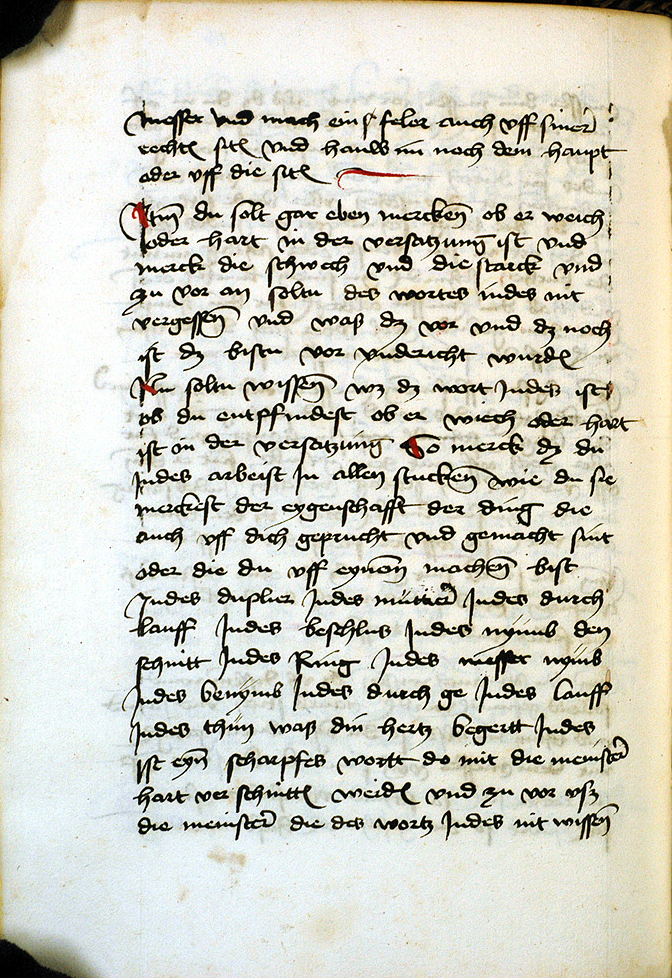 messer vnd mach ein feler auch vff siner
rechten siten vnd hauw im noch dem haupt
oder vff die siten
Item du solt gar eben mercken ob er weich
oder hart in der versatzung ist vnd
merck die schwech vnd die starck vnd
zu vor an soltu des wortes indes nit
vergessen vnd waß dz vor vnd dz noch
ist dz bistu vor vndericht wurden
Nu soltu wissen wz dz wort Indes ist
ob du entpfindest ob er wiech oder hart
ist in der versatzung So merck dz du
Indes arbeist In allen stucken wie du sie
merckest der eygenschafft der ding die
auch vff dich geprucht vnd gemacht sint
oder die du vff eynen machen bist
Indes duplier Indes mutier Indes durch
lauff Indes beschlus Indes nymb den
schnitt Indes Ring Indes messer nymb
Indes benymb Indes durch ge Indes lauff
Indes thun waß din hertz begertt Indes
Ist eyn scharpfes wortt do mit die meinster
hart ver schnitten weiden vnd zu vor vsz
die meinster die des wortz Indes nit wissen